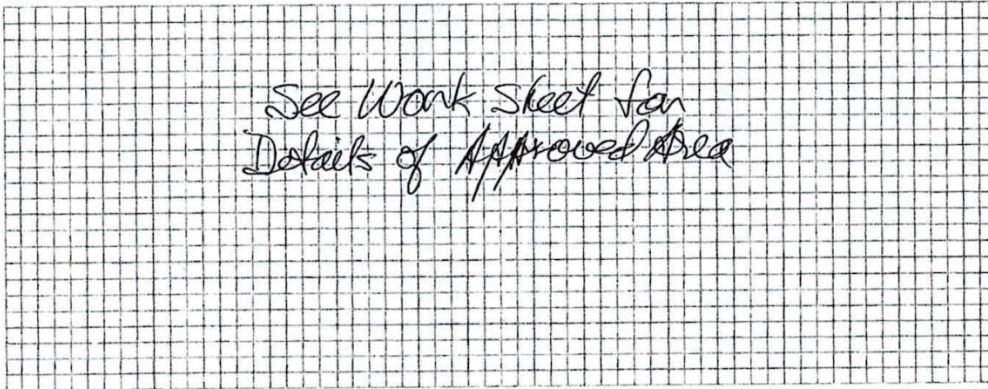 See Work Sheet for
Details of Approved Area